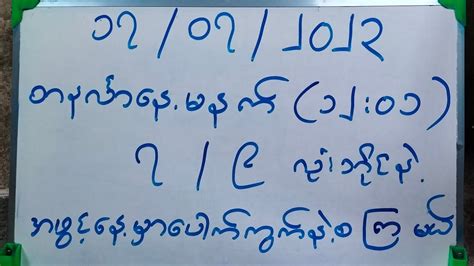 ၁၇ / ၀၇ / ၂၀၂၃
တနင်္လာနေ့ မနက် (၁၂:၀၁)
၇ / ၉ လုံးဘိုင်နဲ့
အဖွင့်နေ့မှာပေါက်ကွက်နဲ့စကြမယ်